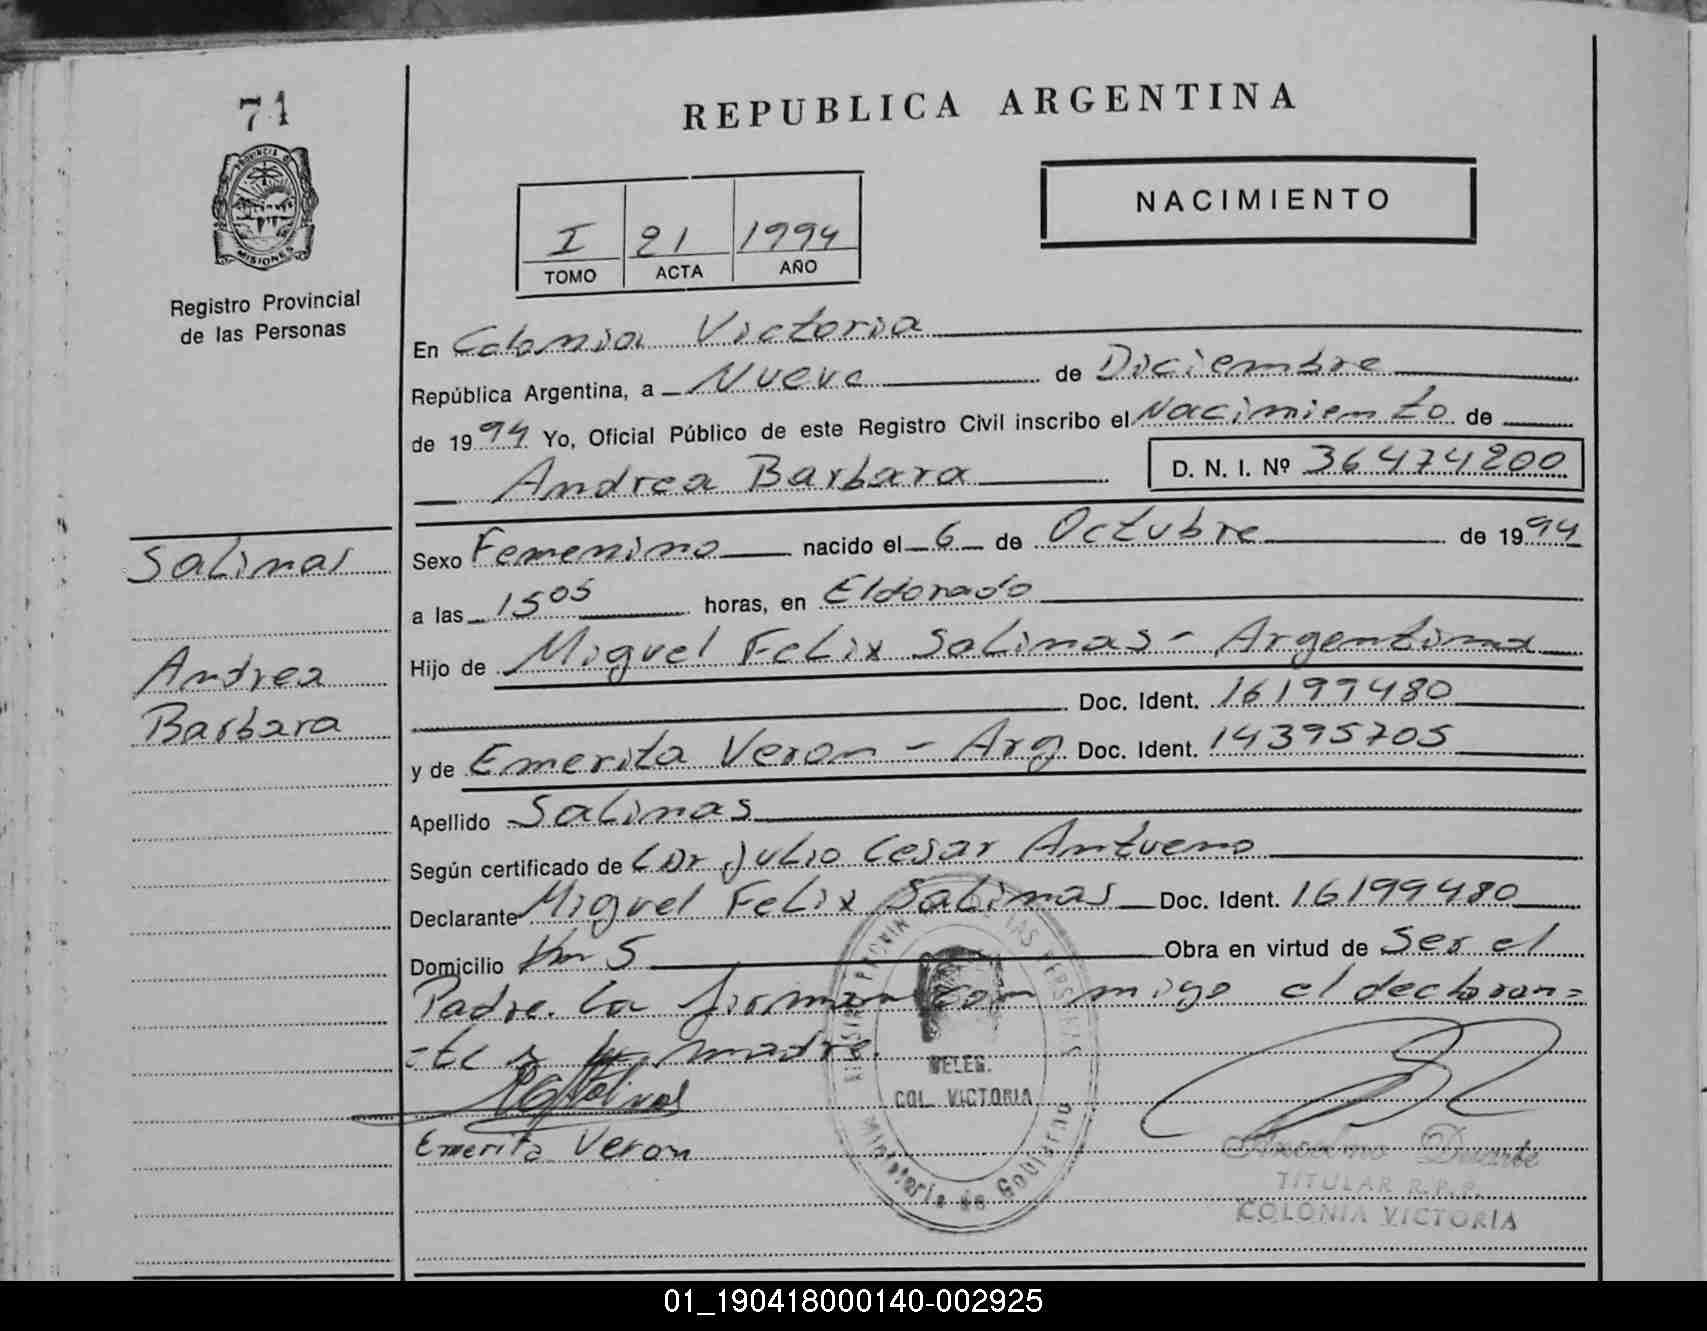 71
PROVINCIA DE
MISIONES
Registro Provincial
de las Personas
REPUBLICA ARGENTINA
NACIMIENTO
I 21 1994
TOMO ACTA AÑO
En Colonia Victoria
República Argentina, a Nueve de Diciembre
de 1994 Yo, Oficial Público de este Registro Civil inscribo el Nacimiento de
Andrea Barbara D. N. I. Nº 36474200
Salinas
Andrea
Barbara
Sexo Femenino nacido el 6 de Octubre de 1994
a las 15 05 horas, en Eldorado
Hijo de Miguel Felix Salinas - Argentina
Doc. Ident. 16199480
y de Emerita Veron - Arg Doc. Ident. 14395705
Apellido Salinas
Según certificado de Julio Cesar Antueno
Declarante Miguel Felix Salinas Doc. Ident. 16199480
Domicilio Km 5 Obra en virtud de Ser el
Padre. La firman con migo el declaran=
=te y madre.
Emerita Veron
DELEG.
COL. VICTORIA
Ministerio de Gobierno
Anselmo Duarte
TITULAR R.P.P.
COLONIA VICTORIA
01_190418000140-002925